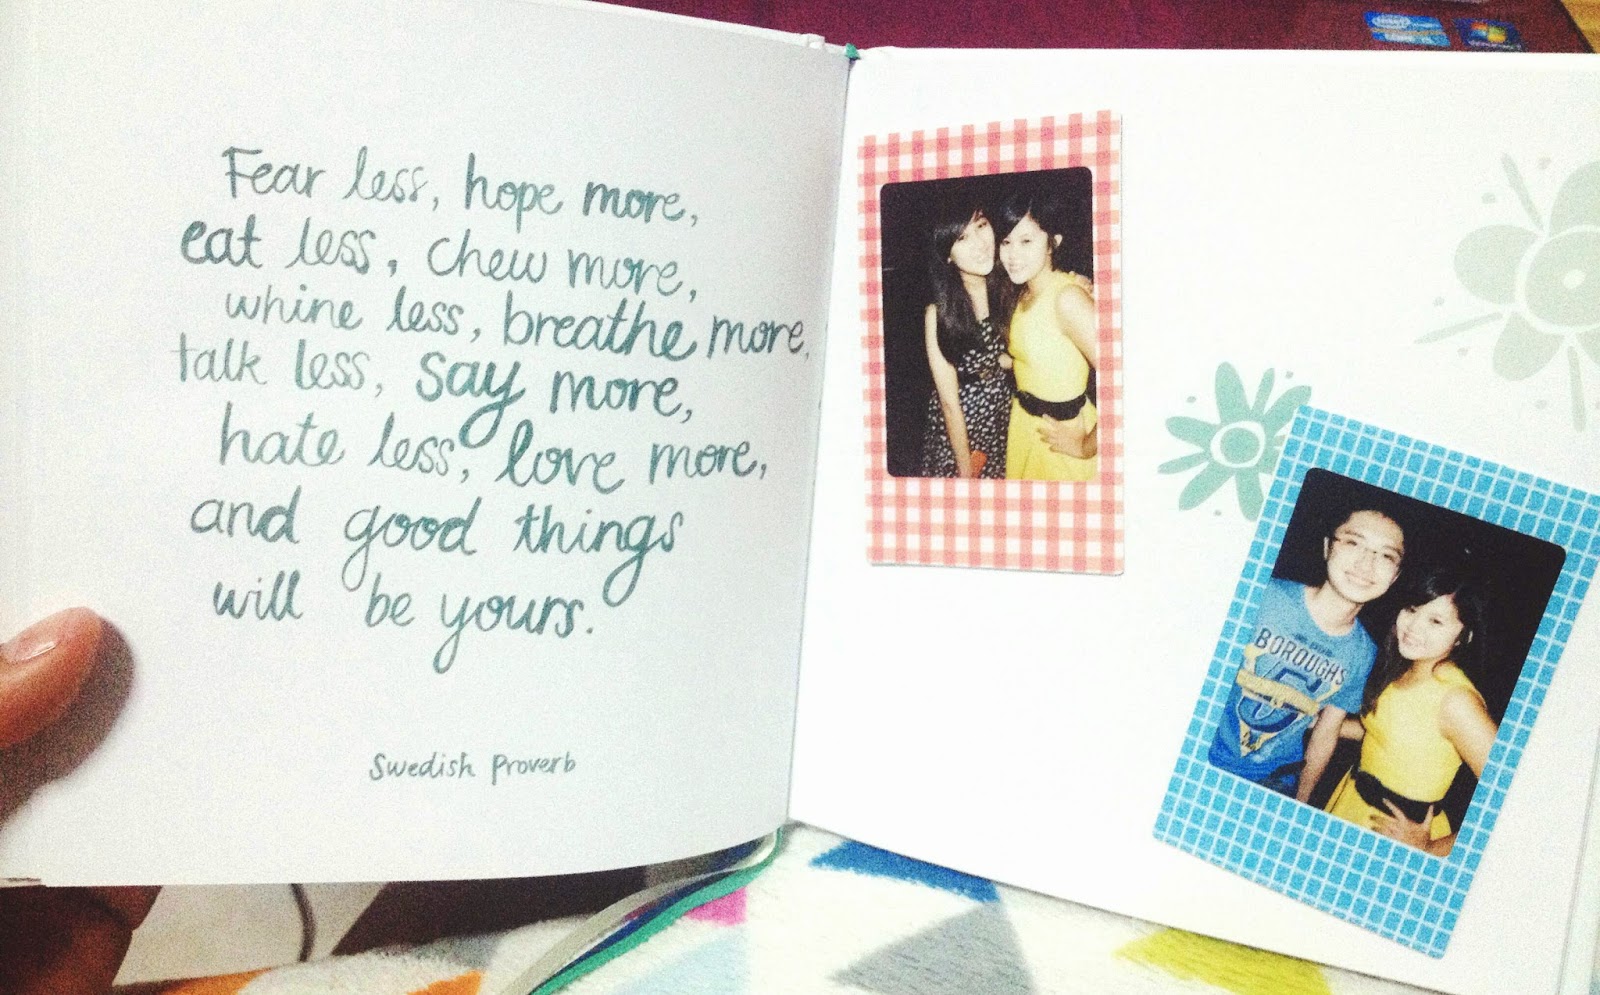 Fear less, hope more,
eat less, chew more,
whine less, breathe more,
talk less, say more,
hate less, love more,
and good things
will be yours.
Swedish Proverb
BOROUGHS